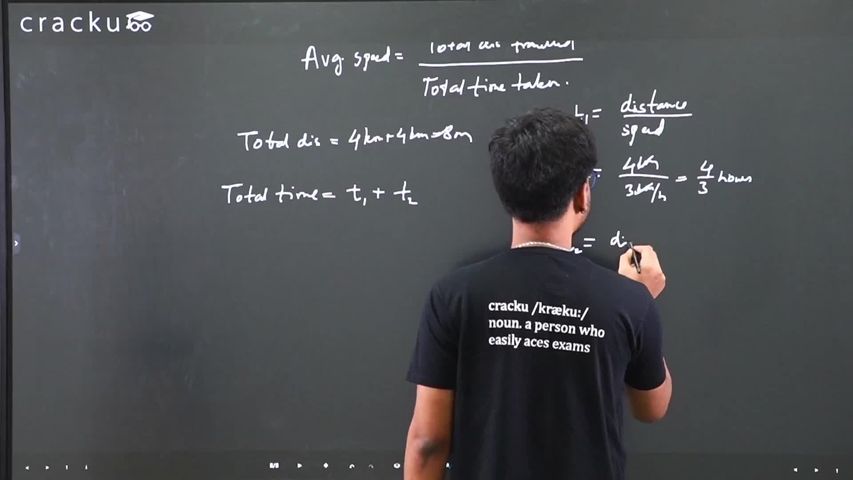 cracku
Avg. speed = Total dis travelled
Total time taken.
Total dis = 4km + 4km = 8m
Total time = t₁ + t₂
t₁ = distance
speed
= 4km
3km/h
= 4
3
hours
₂ = di
cracku /kræku:/
noun. a person who
easily aces exams